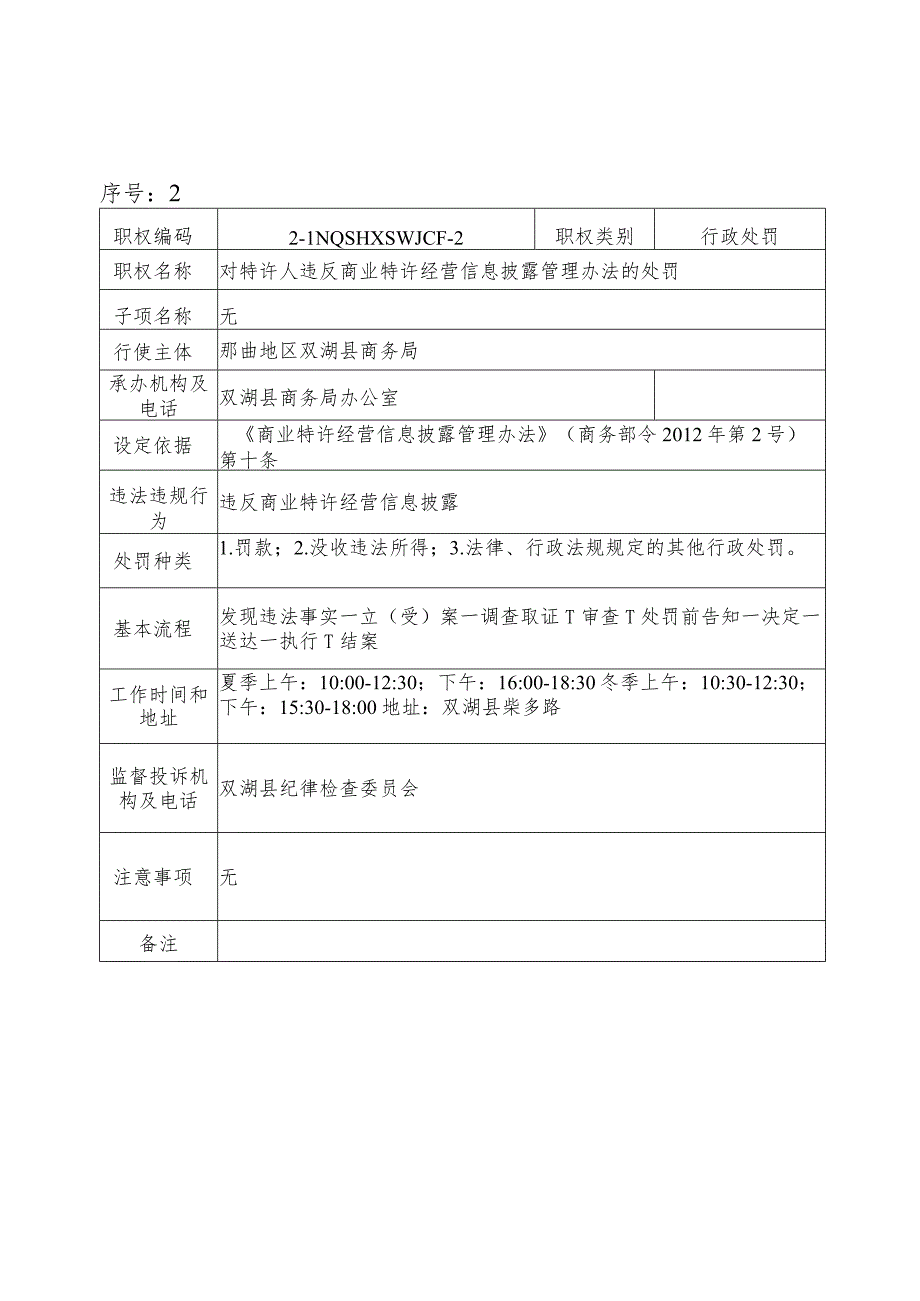 序号：2
职权编码 2-1NQSHXSWJCF-2 职权类别 行政处罚
职权名称 对特许人违反商业特许经营信息披露管理办法的处罚
子项名称 无
行使主体 那曲地区双湖县商务局
承办机构及
电话
双湖县商务局办公室
设定依据
《商业特许经营信息披露管理办法》（商务部令 2012 年第 2 号）
第十条
违法违规行
为
违反商业特许经营信息披露
处罚种类
1.罚款；2.没收违法所得；3.法律、行政法规规定的其他行政处罚。
基本流程
发现违法事实一立（受）案一调查取证 T 审查 T 处罚前告知一决定一
送达一执行 T 结案
工作时间和
地址
夏季上午：10:00-12:30；下午：16:00-18:30 冬季上午：10:30-12:30；
下午：15:30-18:00 地址：双湖县柴多路
监督投诉机
构及电话
双湖县纪律检查委员会
注意事项 无
备注